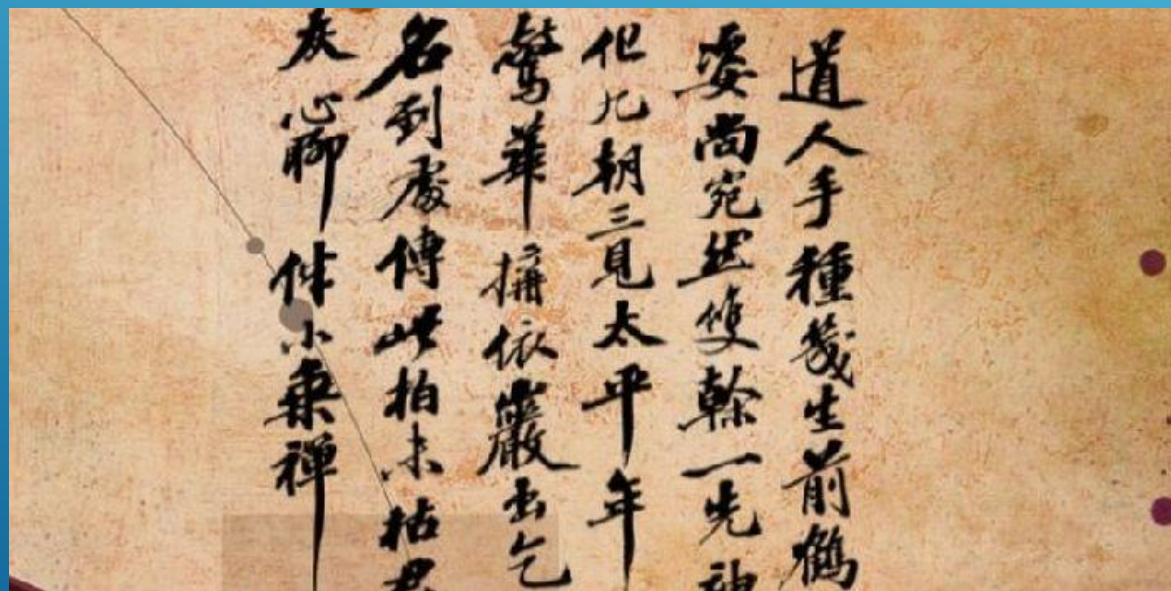 道人手種幾生前鶴
姿尚宛然雙幹一先神
化九朝三見太平年
驚華構依巖出乞
名到處傳此柏未枯君
灰心聊伴小乘禪